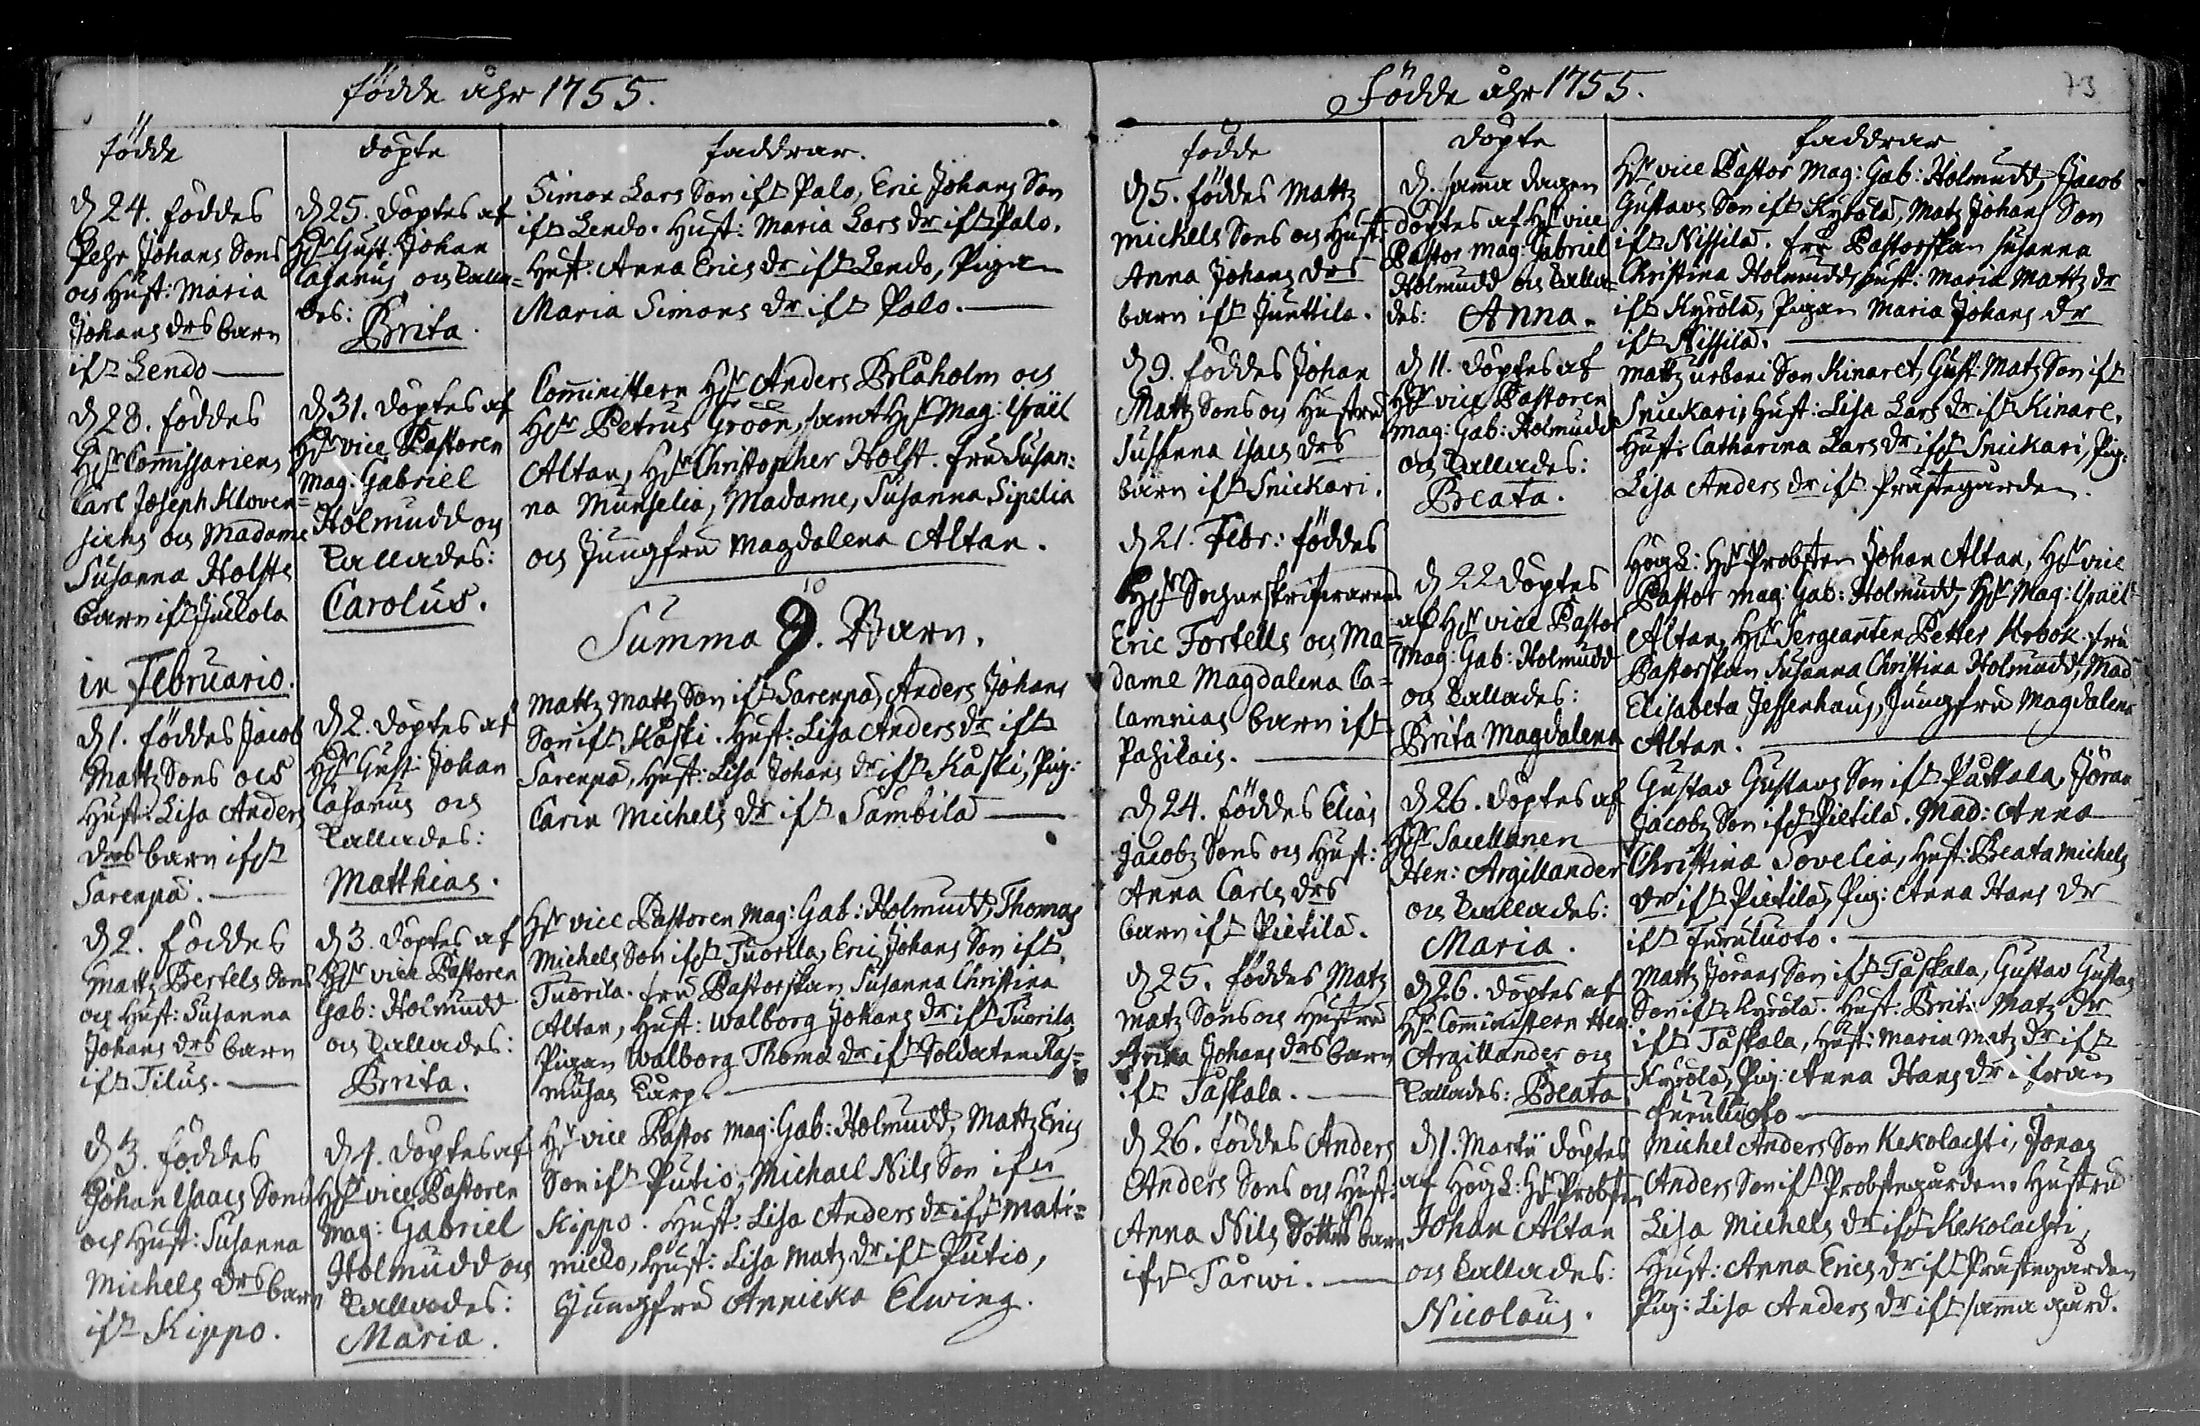 födde åhr 1755.
födde
döpte
faddrar.
d 24. föddes
Pehr Johans Sons
och Hust: Maria
Johans drs barn
ifr Lendo
d 25. döptes af
Hr Gust: Johan
Casanus och kalla=
des:
Brita.
Simon Lars Son ifr Palo, Eric Johans Son
ifr Lendo. Hust: Maria Lars dr ifr Palo,
Hust: Anna Erics dr ifr Lendo, Pigan
Maria Simons dr ifr Palo.
d 28. föddes
Hr Commissariens
Carl Joseph Kloven=
sichs och Madame
Susanna Holsts
barn ifr Juckola
d 31. döptes af
Hr vice Pastoren
Mag: Gabriel
Holmudd och
kallades:
Carolus.
Comministern Hr Anders Blåholm och
Hr Petrus Groön, samt Hr Mag: Israël
Altan, Hr Christopher Holst. fru Susan=
na Munselia, Madame, Susanna Sipelia
och Jungfru Magdalena Altan.
10
Summa 9. Barn.
in Februario.
d 1. föddes Jacob
Mattz Sons och
Hust: Lisa Anders
drs barn ifr
Sarenpä.
d 2. döptes af
Hr Gust: Johan
Casanus och
kallades:
Matthias.
Mattz Mattz Son ifr Sarenpä, Anders Johans
Son ifr Kaski. Hust: Lisa Anders dr ifr
Sarenpä, Hust: Lisa Johans dr ifr Kaski, Pig:
Carin Michels dr ifr Sambila
d 2. föddes
Mattz Bertels Sons
och Hust: Susanna
Johans drs barn
ifr Tilus.
d 3. döptes af
Hr vice Pastoren
Gab: Holmudd
och kallades:
Brita.
Hr vice Pastoren Mag: Gab: Holmudd, Thomas
Michels Son ifr Tuorila, Eric Johans Son ifr
Tuorila. fru Pastorskan Susanna Christina
Altan, Hust: Walborg Johans dr ifr Tuorila
Pigan Walborg Thomæ dr ifr Soldaten Ras=
musas Karp.
d 3. föddes
Johan Isaacs Sons
och Hust: Susanna
Michels drs barn
ifr Kippo.
d 4. döptes af
Hr vice Pastoren
Mag: Gabriel
Holmudd och
kallades:
Maria.
Hr vice Pastor Mag: Gab: Holmudd, Mattz Erics
Son ifr Putio, Michael Nils Son ifr
Kippo. Hust: Lisa Anders dr ifr Mati=
miello, Hust: Lisa Matz dr ifr Putio,
Jungfru Annicka Elwing.
Födde åhr 1755.
73
födde
döpte
faddrar
d 5. föddes Mattz
Michels Sons och Hust:
Anna Johans drs
barn ifr Junttila.
d. sama dagen
döptes af Hr vice
Pastor Mag: Gabriel
Holmudd och kalla=
des: Anna.
Hr vice Pastor Mag: Gab: Holmudd, Jacob
Gustavs Son ifr Kyrölä, Matz Johans Son
ifr Nissilä. fru Pastorskan Susanna
Christina Holmudd, Hust: Maria Mattz dr
ifr Kyrölä, Pigan Maria Johans dr
ifr Nissilä.
d 9. föddes Johan
Mattz Sons och Hustru
Susanna Isacs drs
barn ifr Snickari.
d 11. döptes af
Hr vice Pastoren
Mag: Gab: Holmudd
och kallades:
Beata.
Mattz urbani Son Kinaret, Gust: Matz Son ifr
Snickari, Hust: Lisa Lars dr ifr Kinare.
Hust: Catharina Lars dr ifr Snickari, Pig:
Lisa Anders dr ifr Prästegården.
d 21. Febr: föddes
Hr Sochneskrifvarens
Eric Fortells och Ma=
dame Magdalena Ca=
lamnias barn ifr
Pahilais.
d 22 döptes
af Hr vice Pastor
Mag: Gab: Holmudd
och kallades:
Brita Magdalena
HögL: Hr Probsten Johan Altan, Hr vice
Pastor Mag: Gab: Holmudd, Hr Mag: Israël
Altan, Hr Sergeanten Petter Krook. fru
Pastorskan Susanna Christina Holmudd, Mad
Elisabeta Jessenhaus, Jungfru Magdalena
Altan.
d 24. föddes Elias
Jacobz Sons och Hust:
Anna Carls drs
barn ifr Pietilä.
d 26. döptes af
Hr Sacellanen
Hen: Argillander
och kallades:
Maria.
Gustav Gustavs Son ifr Puttala, Jöran
Jacobz Son ifr Pietilä. Mad: Anna
Christina Sovelia, Hust: Beata Michels
dr ifr Pietilä, Pig: Anna Hans dr
ifr Furuluoto.
d 25. föddes Matz
Matz Sons och Hustru
Anna Johans drs barn
ifr Taskala.
d 26. döptes af
Hr Comministern Hen
Argillander och
kallades: Beata
Mattz Jörans Son ifr Taskala, Gustav Gustavs
Son ifr Kyrölä. Hust: Brita Matz dr
ifr Taskala, Hust: Maria Matz dr ifr
Kyrölä, Pig: Anna Hans dr ifrån
Furuluoto
d 26. föddes Anders
Anders Sons och Hust:
Anna Nils Dotters barn
ifr Tårwi.
d 1. Martii döptes
af HögL: Hr Probsten
Johan Altan
och kallades:
Nicolaus.
Michel Anders Son Kekolachti, Jonas
Anders Son ifr Probstegården. Hustru
Lisa Michels dr ifr Kekolachti,
Hust: Anna Erics dr ifr Prästegården
Pig: Lisa Anders dr ifr sama gård.